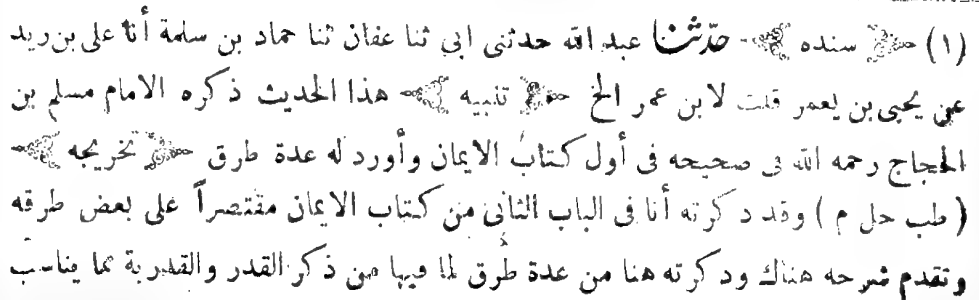 (١) ﴿ سنده ﴾ حدّثنا عبد الله حدثنى ابي ثنا عفان ثنا حماد بن سلمة أنا على بن زيد
عن يحيى بن يعمر قلت لابن عمر الخ ﴿ تنبيه ﴾ هذا الحديث ذكره الامام مسلم بن
الحجاج رحمه الله فى صحيحه فى أول كتاب الايمان وأورد له عدة طرق ﴿ تخريجه ﴾
( طب حل م ) وقد ذكرته أنا فى الباب الثانى من كتاب الايمان مقتصراً على بعض طرقه
وتقدم شرحه هناك وذكرته هنا من عدة طرق لما فيها من ذكر القدر والقدرية مما يناسب